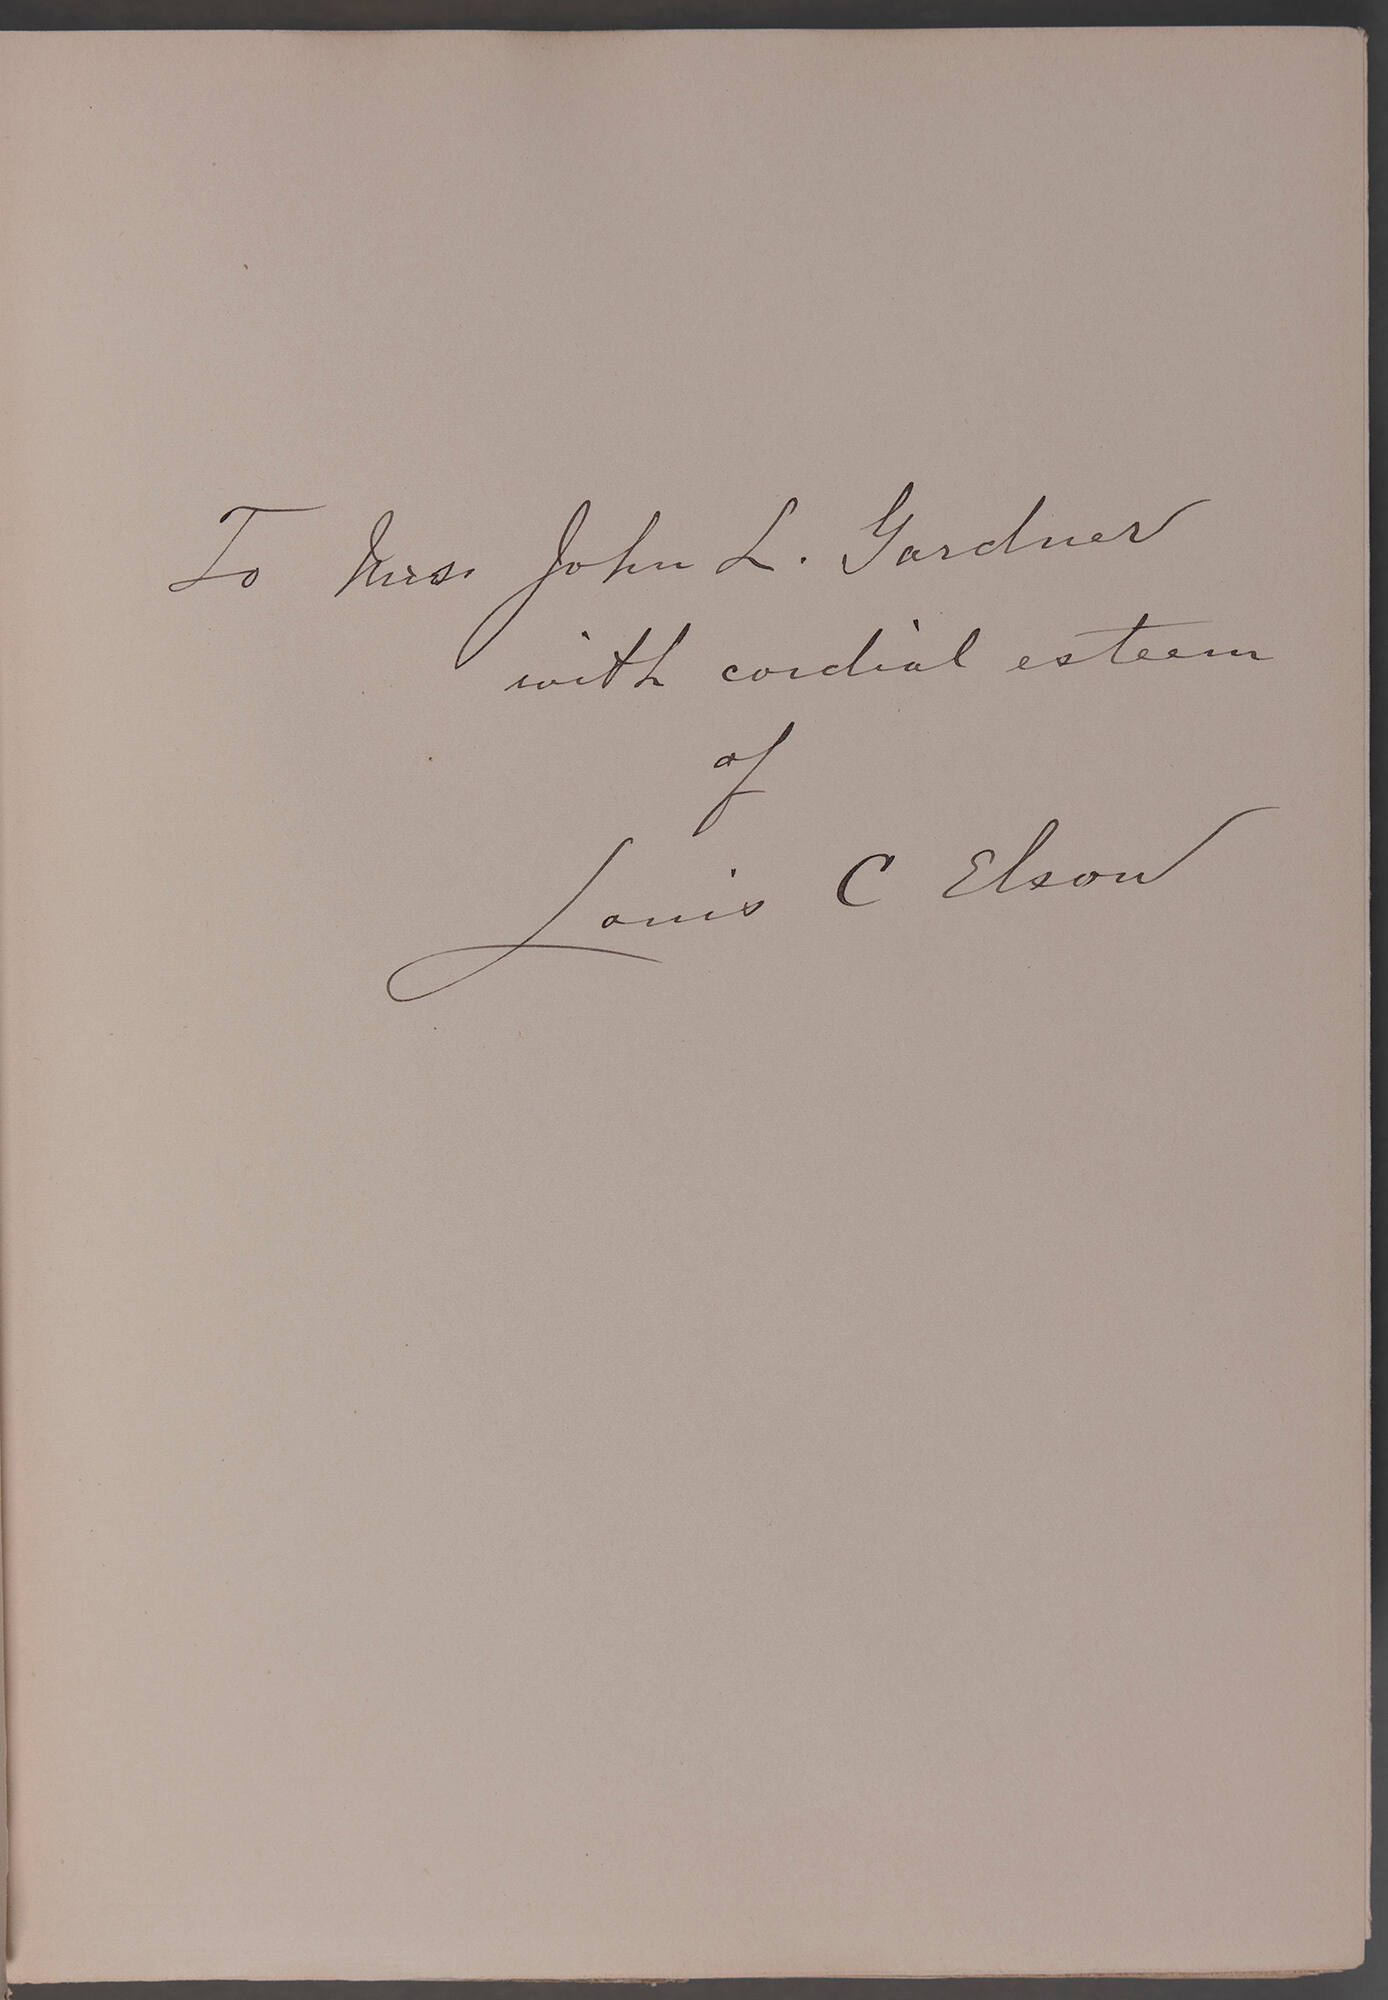 To Mrs. John L. Gardner
with cordial esteem
of
Louis C Elson